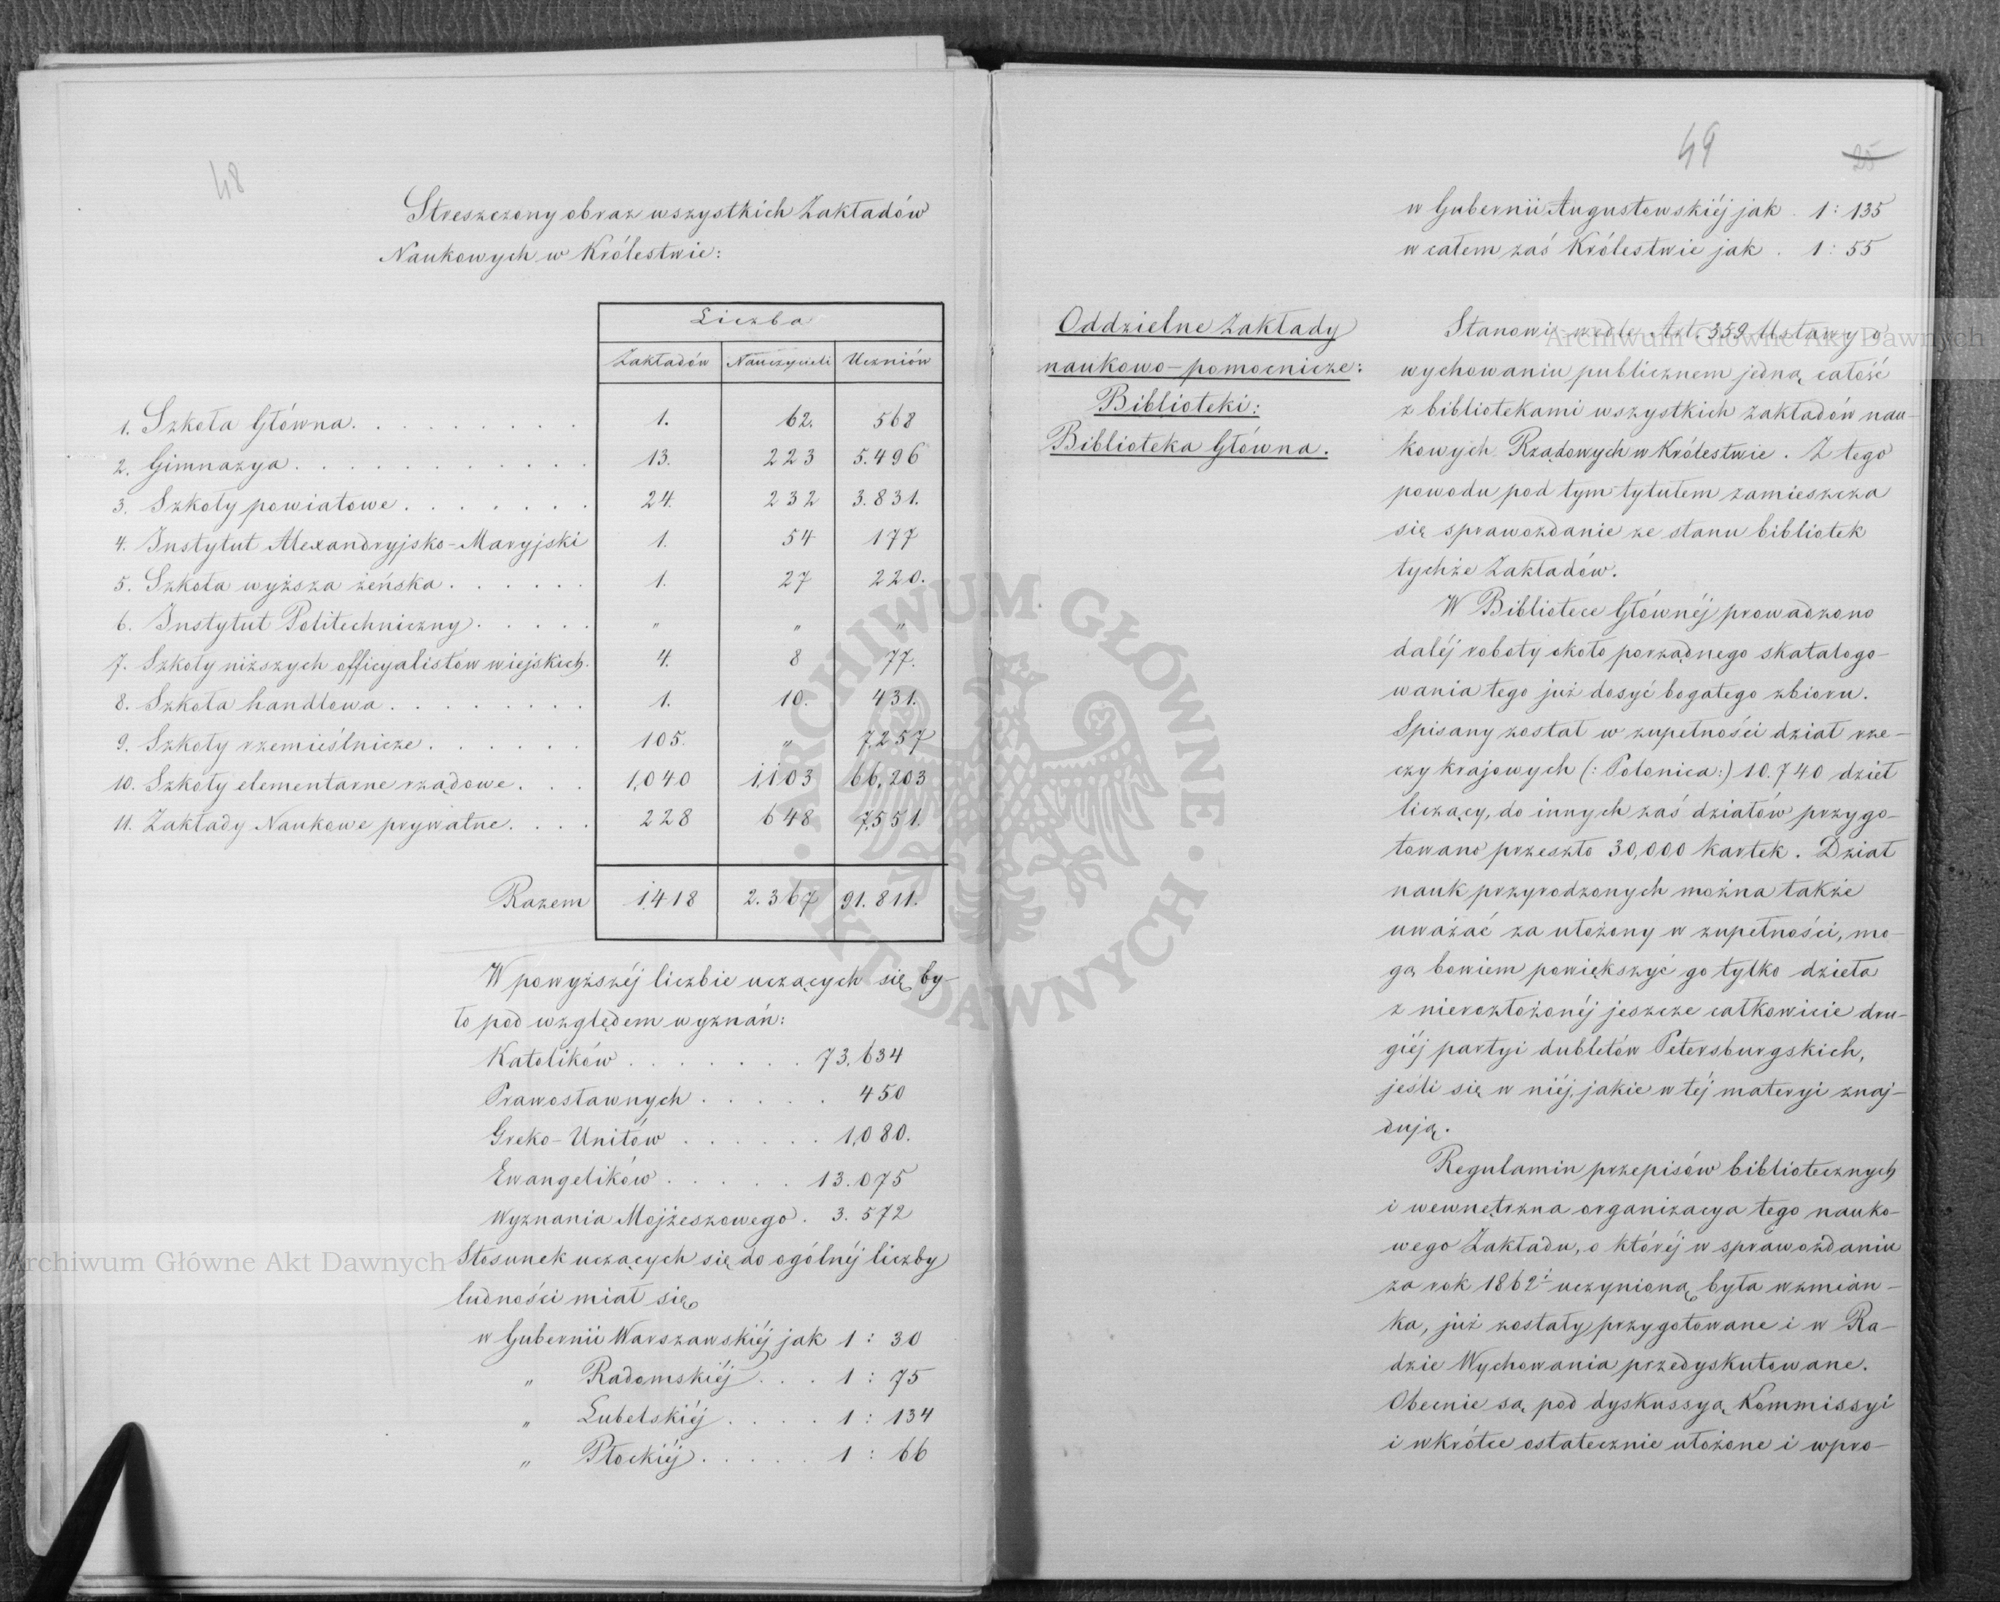 48
Streszczony obraz wszystkich Zakładów
Naukowych w Królestwie:
Liczba
Zakładów Nauczycieli Uczniów
1. Szkoła Główna. . . . . . . . 1. 62. 568
2. Gimnazya . . . . . . . . . . 13. 223 5.496
3. Szkoły powiatowe . . . . . . . 24. 232 3.831.
4. Instytut Alexandryjsko-Maryjski 1. 54 177
5. Szkoła wyższa żeńska . . . . . . 1. 27 220.
6. Instytut Politechniczny . . . . . " " "
7. Szkoły niższych officyalistów wiejskich. 4. 8 77.
8. Szkoła handlowa . . . . . . . . 1. 10. 431.
9. Szkoły rzemieślnicze . . . . . . 105. " 7,257
10. Szkoły elementarne rządowe . . . 1,040 1,103 66,203
11. Zakłady Naukowe prywatne. . . . 228 648 7,551.
Razem 1,418 2.367 91.811.
W powyższéj liczbie uczących się by-
ło pod względem wyznań:
Katolików . . . . . . . 73,634
Prawosławnych . . . . . 450
Greko-Unitów . . . . . . 1,080.
Ewangelików . . . . . 13.075
Wyznania Mojżeszowego . 3.572
Stosunek uczących się do ogólnéj liczby
ludności miał się
w Gubernii Warszawskiéj jak 1 : 30
" Radomskiéj . . . 1 : 75
" Lubelskiéj . . . . 1 : 134
" Płockiéj . . . . . 1 : 66
49
25
w Gubernii Augustowskiéj jak . 1 : 135
w całem zaś Królestwie jak . 1 : 55
Oddzielne Zakłady
naukowo-pomocnicze:
Biblioteki:
Biblioteka Główna.
Stanowi wedle Art. 359 Ustawy o
wychowaniu publicznem jedną całość
z bibliotekami wszystkich zakładów nau-
kowych Rządowych w Królestwie. Z tego
powodu pod tym tytułem zamieszcza
się sprawozdanie ze stanu bibliotek
tychże Zakładów.
W Bibliotece Głównéj prowadzono
daléj roboty około porządnego skatalogo-
wania tego już dosyć bogatego zbioru.
Spisany został w zupełności dział rze-
czy krajowych (: Polonica :) 10.740 dzieł
liczący, do innych zaś działów przygo-
towano przeszło 30,000 kartek. Dział
nauk przyrodzonych można także
uważać za ułożony w zupełności, mo-
gą bowiem powiększyć go tylko dzieła
z nierozłożonéj jeszcze całkowicie dru-
giéj partyi dubletów Petersburgskich,
jeśli się w niéj, jakie w téj materyi znaj-
dują.
Regulamin przepisów bibliotecznych
i wewnętrzna organizacya tego nauko-
wego Zakładu, o któréj w sprawozdaniu
za rok 1862i uczynioną była wzmian-
ka, już zostały przygotowane i w Ra-
dzie Wychowania przedyskutowane.
Obecnie są pod dyskussyą Kommissyi
i wkrótce ostatecznie ułożone i wpro-
Archiwum Główne Akt Dawnych
Archiwum Główne Akt Dawnych
ARCHIWUM GŁÓWNE · AKT DAWNYCH ·